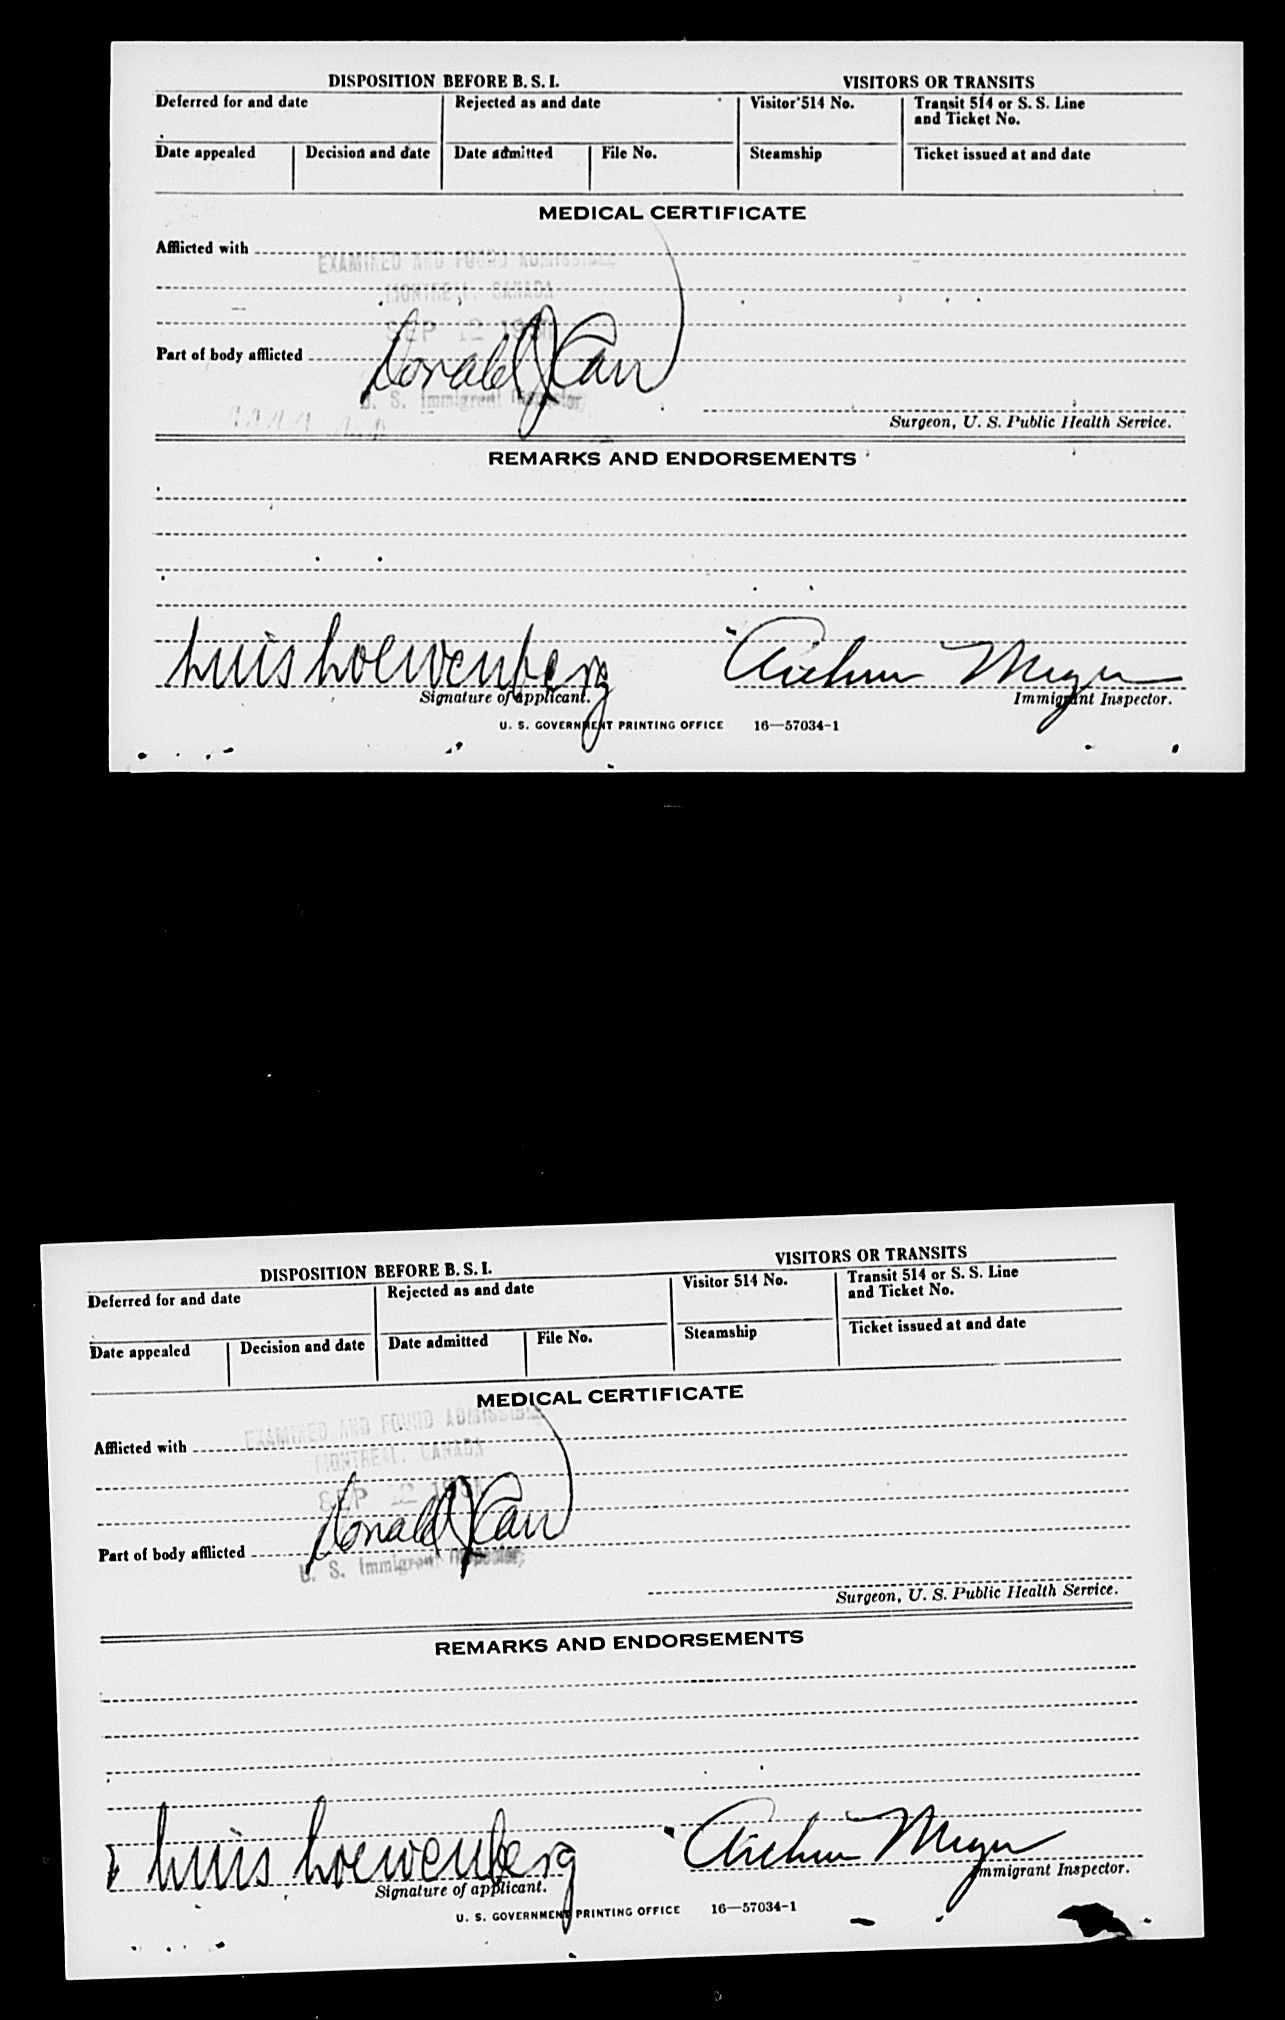 DISPOSITION BEFORE B. S. I. VISITORS OR TRANSITS
Deferred for and date Rejected as and date Visitor 514 No. Transit 514 or S. S. Line
and Ticket No.
Date appealed Decision and date Date admitted File No. Steamship Ticket issued at and date
MEDICAL CERTIFICATE
Afflicted with
EXAMINED AND FOUND ADMISSIBLE
MONTREAL, CANADA
SEP 12
Donald J Carr
Part of body afflicted
U. S. Immigrant Inspector
Surgeon, U. S. Public Health Service.
REMARKS AND ENDORSEMENTS
Luis Loewenberg Arthur Meyer
Signature of applicant. Immigrant Inspector.
U. S. GOVERNMENT PRINTING OFFICE 16—57034-1
DISPOSITION BEFORE B. S. I. VISITORS OR TRANSITS
Deferred for and date Rejected as and date Visitor 514 No. Transit 514 or S. S. Line
and Ticket No.
Date appealed Decision and date Date admitted File No. Steamship Ticket issued at and date
MEDICAL CERTIFICATE
EXAMINED AND FOUND ADMISSIBLE
Afflicted with
MONTREAL, CANADA
SEP 12
Donald J Carr
Part of body afflicted
U. S. Immigrant Inspector
Surgeon, U. S. Public Health Service.
REMARKS AND ENDORSEMENTS
Luis Loewenberg Arthur Meyer
Signature of applicant. Immigrant Inspector.
U. S. GOVERNMENT PRINTING OFFICE 16—57034-1